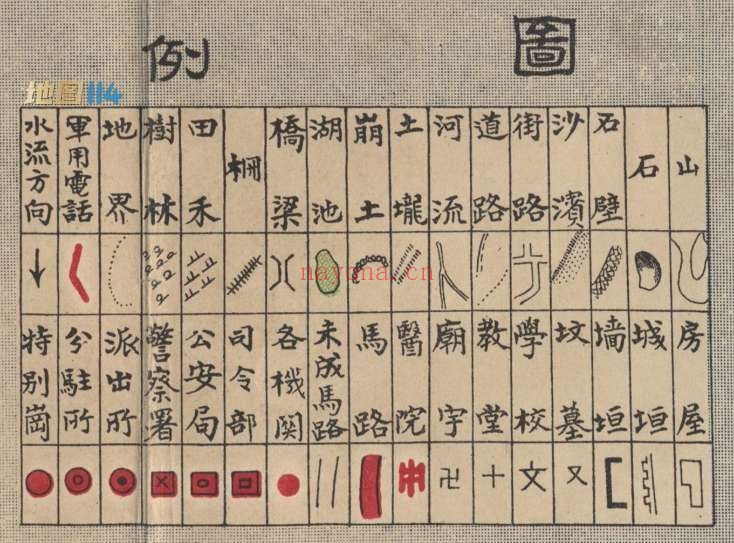 圖例
地图114
山
石
石壁
沙濱
街路
道路
河流
土壠
崩土
湖池
橋梁
柵
田禾
樹林
地界
軍用電話
水流方向
nayona.cn
房屋
城垣
墙垣
坟墓
學校
教堂
廟宇
醫院
馬路
未成馬路
各機関
司令部
公安局
警察署
派出所
分駐所
特别崗
文
又